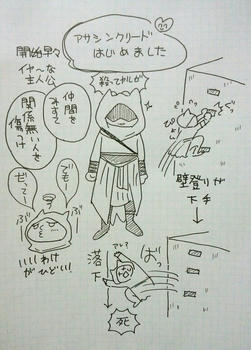 アサシンクリード
はじめました
開始早々
イヤ〜な
主人公
仲間を
みすて
関係無い人を
傷つけ
殺ってやんぜ
ぴょん
壁登りが
下手
ぶ
ぶ
いいわけ
がひどい!
落下
アレ?
ばっ
死